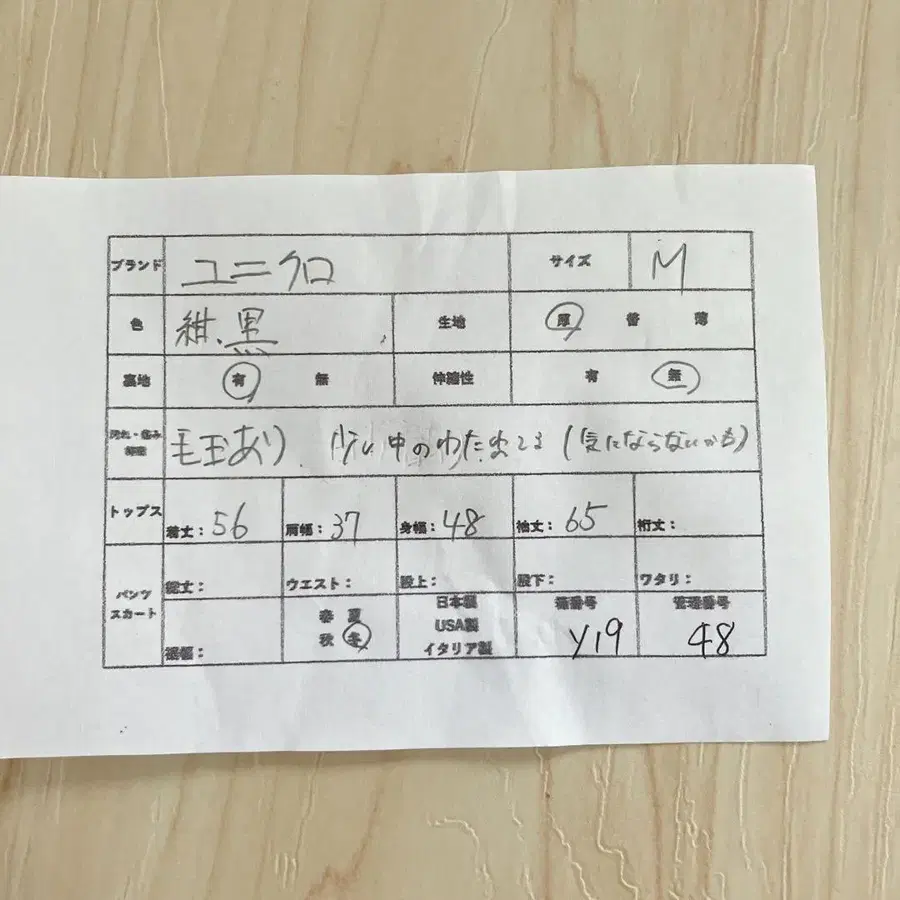 ブランド ユニクロ サイズ M
色 紺、黒 生地 厚 普 薄
裏地 有 無 伸縮性 有 無
汚れ・傷み 毛玉あり 中のわた (気にならないかも)
トップス 着丈：56 肩幅：37 身幅：48 袖丈：65 裄丈：
パンツ スカート 総丈： ウエスト： 股上： 股下： ワタリ：
裾幅： 春 夏 秋 冬 日本製 USA製 イタリア製 箱番号 Y19 管理番号 48